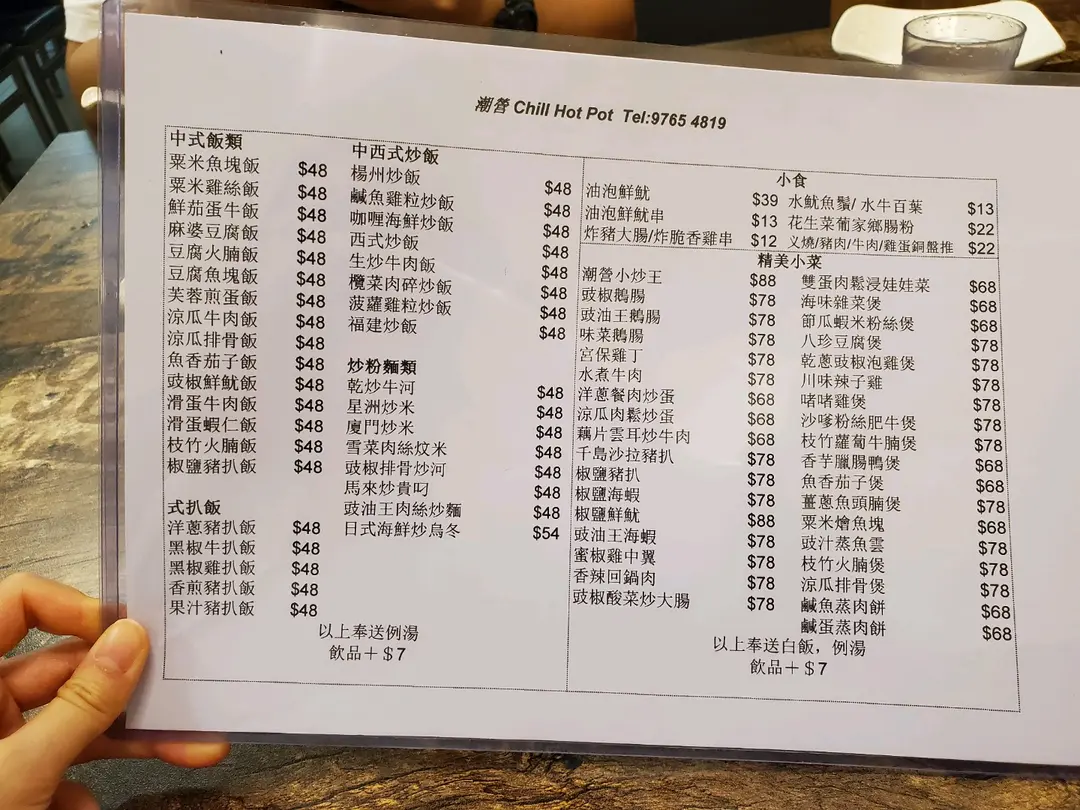 潮營 Chill Hot Pot Tel:9765 4819
中式飯類
粟米魚塊飯 $48
粟米雞絲飯 $48
鮮茄蛋牛飯 $48
麻婆豆腐飯 $48
豆腐火腩飯 $48
豆腐魚塊飯 $48
芙蓉煎蛋飯 $48
涼瓜牛肉飯 $48
涼瓜排骨飯 $48
魚香茄子飯 $48
豉椒鮮魷飯 $48
滑蛋牛肉飯 $48
滑蛋蝦仁飯 $48
枝竹火腩飯 $48
椒鹽豬扒飯 $48
式扒飯
洋蔥豬扒飯 $48
黑椒牛扒飯 $48
黑椒雞扒飯 $48
香煎豬扒飯 $48
果汁豬扒飯 $48
中西式炒飯
楊州炒飯 $48
鹹魚雞粒炒飯 $48
咖喱海鮮炒飯 $48
西式炒飯 $48
生炒牛肉飯 $48
欖菜肉碎炒飯 $48
菠蘿雞粒炒飯 $48
福建炒飯 $48
炒粉麵類
乾炒牛河 $48
星洲炒米 $48
廈門炒米 $48
雪菜肉絲炆米 $48
豉椒排骨炒河 $48
馬來炒貴叼 $48
豉油王肉絲炒麵 $48
日式海鮮炒烏冬 $54
以上奉送例湯
飲品＋＄7
小食
油泡鮮魷 $39 水魷魚鬚/ 水牛百葉 $13
油泡鮮魷串 $13 花生菜葡家鄉腸粉 $22
炸豬大腸/炸脆香雞串 $12 义燒/豬肉/牛肉/雞蛋銅盤推 $22
精美小菜
潮營小炒王 $88
豉椒鵝腸 $78
豉油王鵝腸 $78
味菜鵝腸 $78
宮保雞丁 $78
水煮牛肉 $78
洋蔥餐肉炒蛋 $68
涼瓜肉鬆炒蛋 $68
藕片雲耳炒牛肉 $68
千島沙拉豬扒 $78
椒鹽豬扒 $78
椒鹽海蝦 $78
椒鹽鮮魷 $88
豉油王海蝦 $78
蜜椒雞中翼 $78
香辣回鍋肉 $78
豉椒酸菜炒大腸 $78
雙蛋肉鬆浸娃娃菜 $68
海味雜菜煲 $68
節瓜蝦米粉絲煲 $68
八珍豆腐煲 $78
乾蔥豉椒泡雞煲 $78
川味辣子雞 $78
啫啫雞煲 $78
沙嗲粉絲肥牛煲 $78
枝竹蘿蔔牛腩煲 $78
香芋臘腸鴨煲 $68
魚香茄子煲 $68
薑蔥魚頭腩煲 $78
粟米燴魚塊 $68
豉汁蒸魚雲 $78
枝竹火腩煲 $78
涼瓜排骨煲 $78
鹹魚蒸肉餅 $68
鹹蛋蒸肉餅 $68
以上奉送白飯，例湯
飲品＋＄7